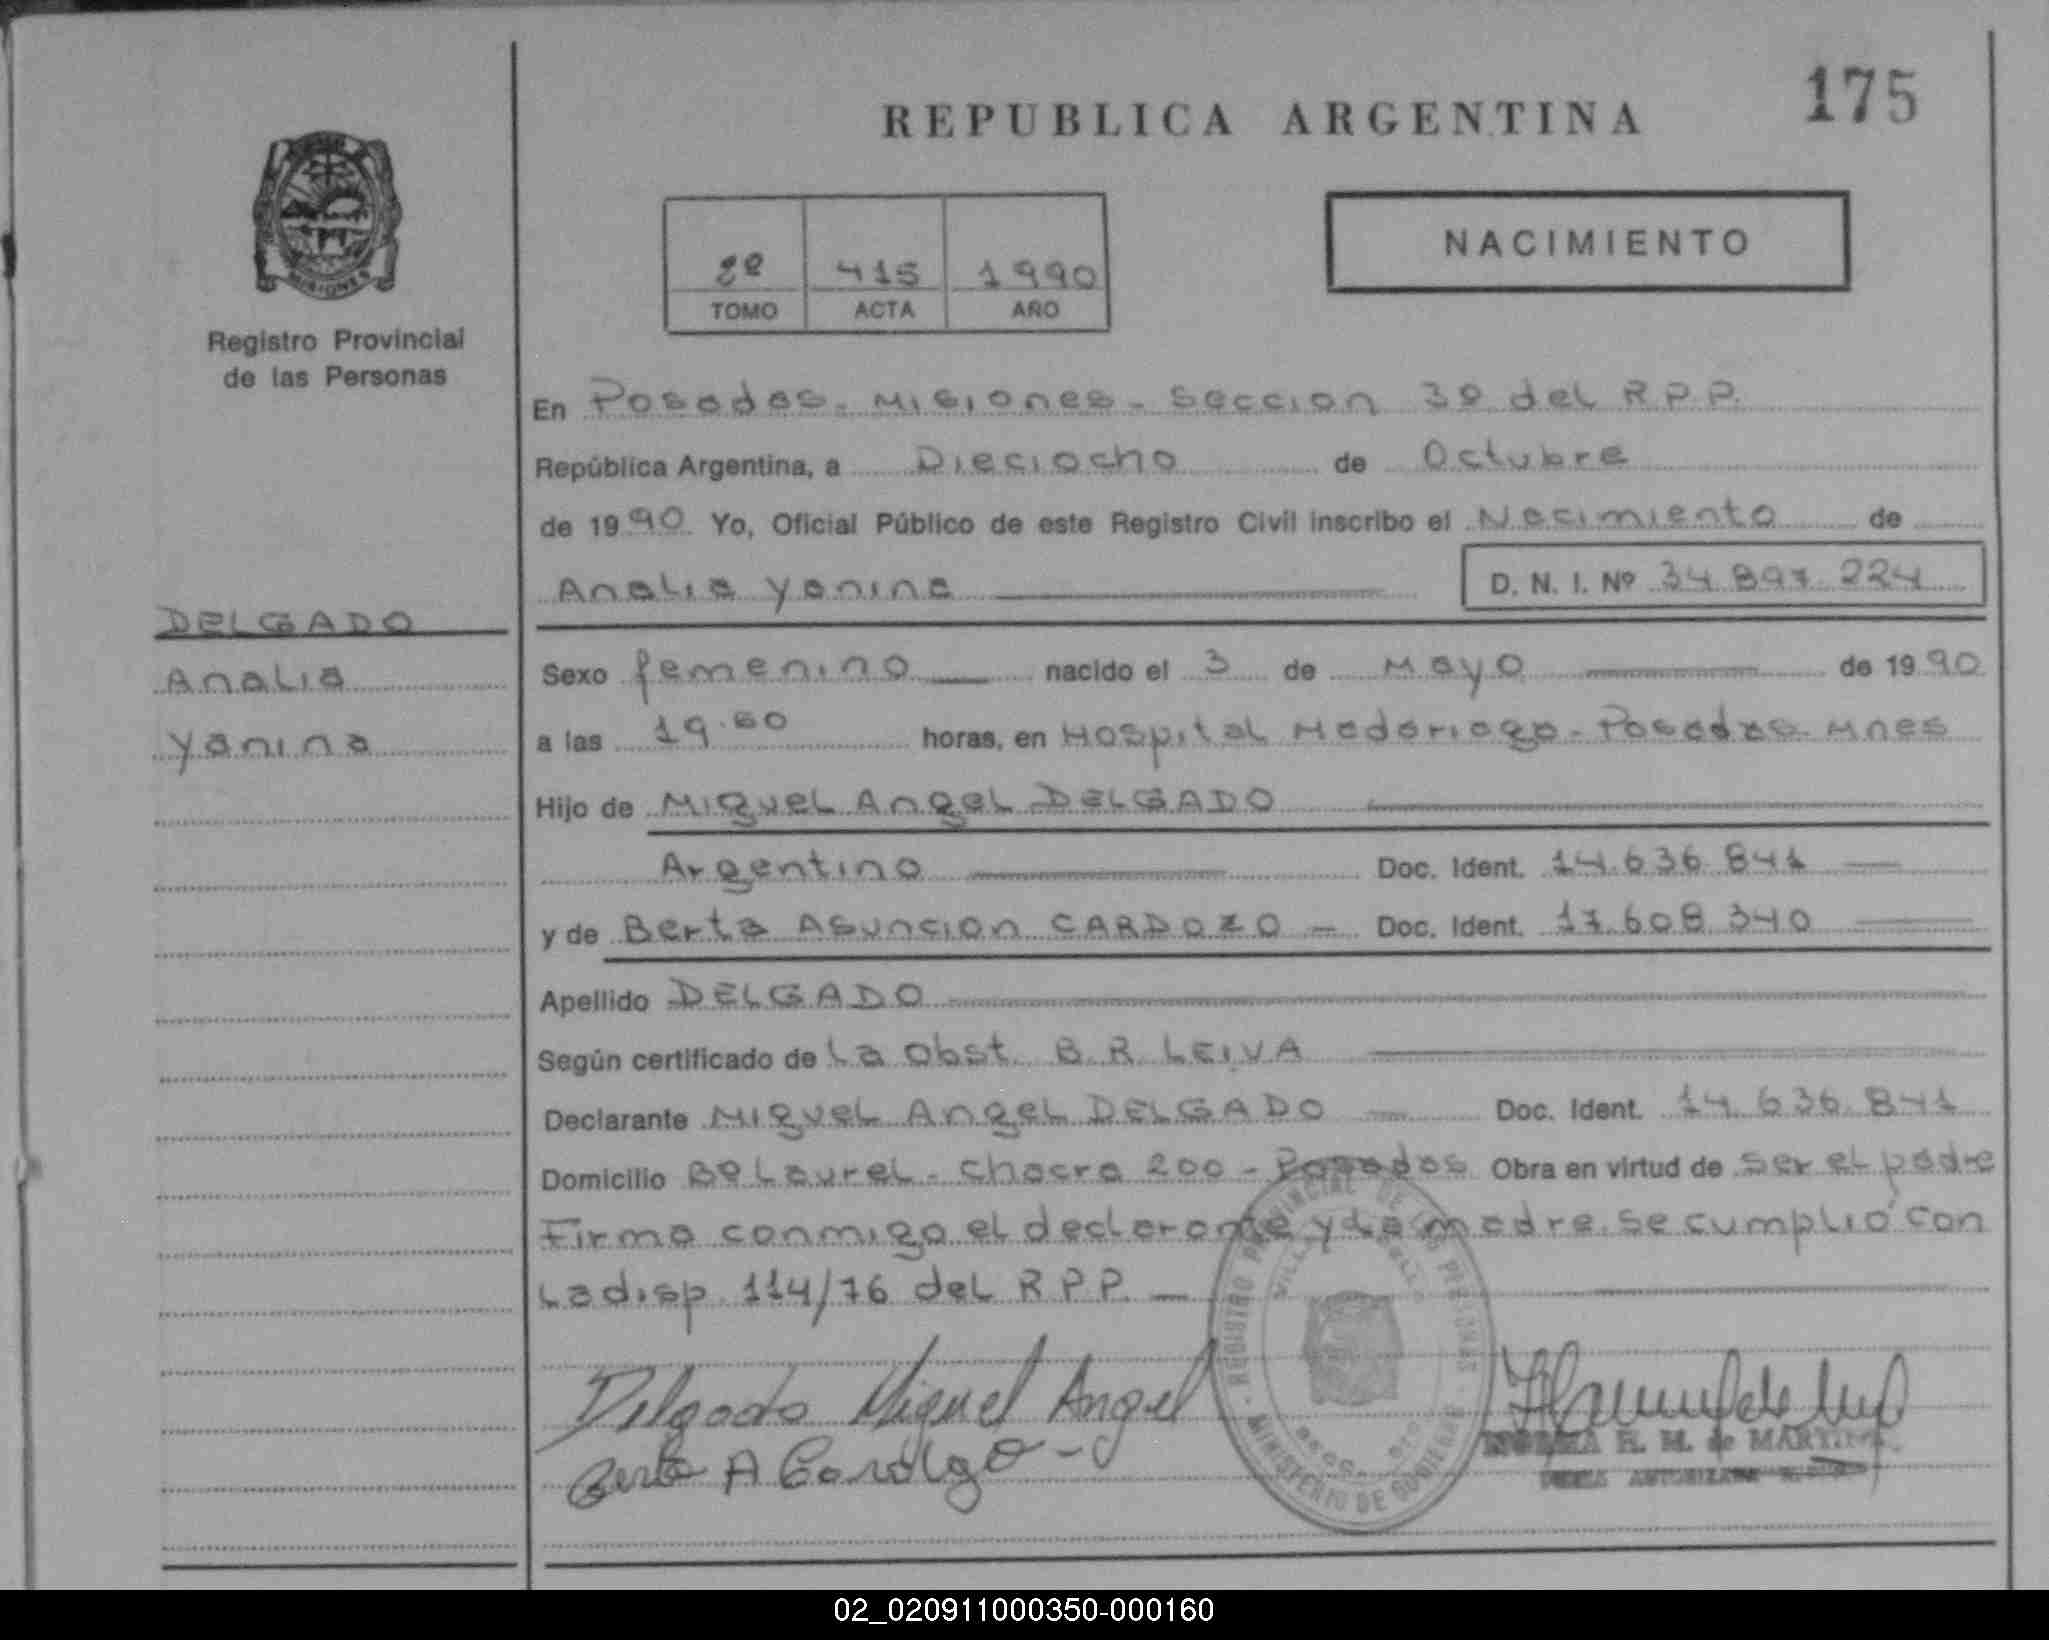 175
REPUBLICA ARGENTINA
NACIMIENTO
2º 415 1990
TOMO ACTA AÑO
MISIONES
Registro Provincial
de las Personas
DELGADO
Analia
Yanina
En Posadas - Misiones - Seccion 3º del R.P.P.
República Argentina, a Dieciocho de Octubre
de 1990 Yo, Oficial Público de este Registro Civil inscribo el Nacimiento de
Analia Yanina D. N. I. Nº 34.897.224
Sexo femenino nacido el 3 de Mayo de 1990
a las horas, en Hospital Madariaga - Posadas - Mnes
Hijo de Miguel Angel DELGADO
Argentino Doc. Ident. 14.636.841
y de Berta Asuncion CARDOZO - Doc. Ident. 17.608.340
Apellido DELGADO
Según certificado de La Obst. B. R. LEIVA
Declarante Miguel Angel DELGADO Doc. Ident. 14.636.841
Domicilio Bº Laurel - Chacra 200 - Posadas Obra en virtud de ser el padre
Firma conmigo el declarante y la madre. Se cumplió con
la disp. 114/76 del R.P.P. —
REGISTRO PROVINCIAL DE LAS PERSONAS
MINISTERIO DE GOBIERNO
Delgado Miguel Angel
Berta A
NORMA H. M. de
02_020911000350-000160